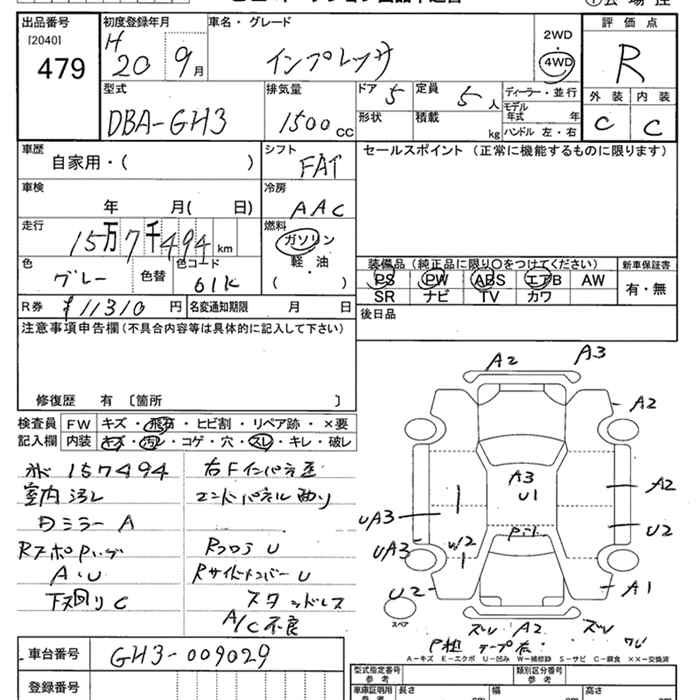 出品番号
[2040]
479
初度登録年月
H 20 9月
車名・グレード
インプレッサ
2WD
4WD
評価点
R
型式
DBA-GH3
排気量
1500cc
ドア 5
定員 5人
ディーラー・並行
形状
積載 kg
モデル年式 年
ハンドル 左・右
外装 内装
C C
車歴
自家用・( )
シフト
FAT
セールスポイント (正常に機能するものに限ります)
車検
年 月( 日)
冷房
AAC
走行
15万7千494km
燃料
ガソリン
軽・油
( )
色
グレー
色替
色コード
61K
装備品(純正品に限り○をつけてください)
PS PW ABS エアB AW
SR ナビ TV カワ
新車保証書
有・無
R券 ¥11310円
名変通知期限 月 日
後日品
注意事項申告欄(不具合内容等は具体的に記入して下さい)
修復歴 有〔箇所 〕
検査員記入欄
FW キズ・飛石・ヒビ割・リペア跡・×要
内装 キズ・汚レ・コゲ・穴・スレ・キレ・破レ
157494
室内汚レ
ミラー A
A・U
下廻りC
右Fインパネ歪
エンドパネル曲り
RフロアU
RサイドメンバーU
スタッドレス
A/C不良
A2
A3
A2
A3
U1
A2
UA3
U2
UA3
W2
U2
A1
スペア
A2
A-キズ E-エクボ U-凹み W-補修跡 S-サビ C-腐食 XX-交換済
車台番号
GH3-009029
登録番号
型式指定番号
参考
類別区分番号
参考
車庫証明用
参考
長さ
幅
高さ